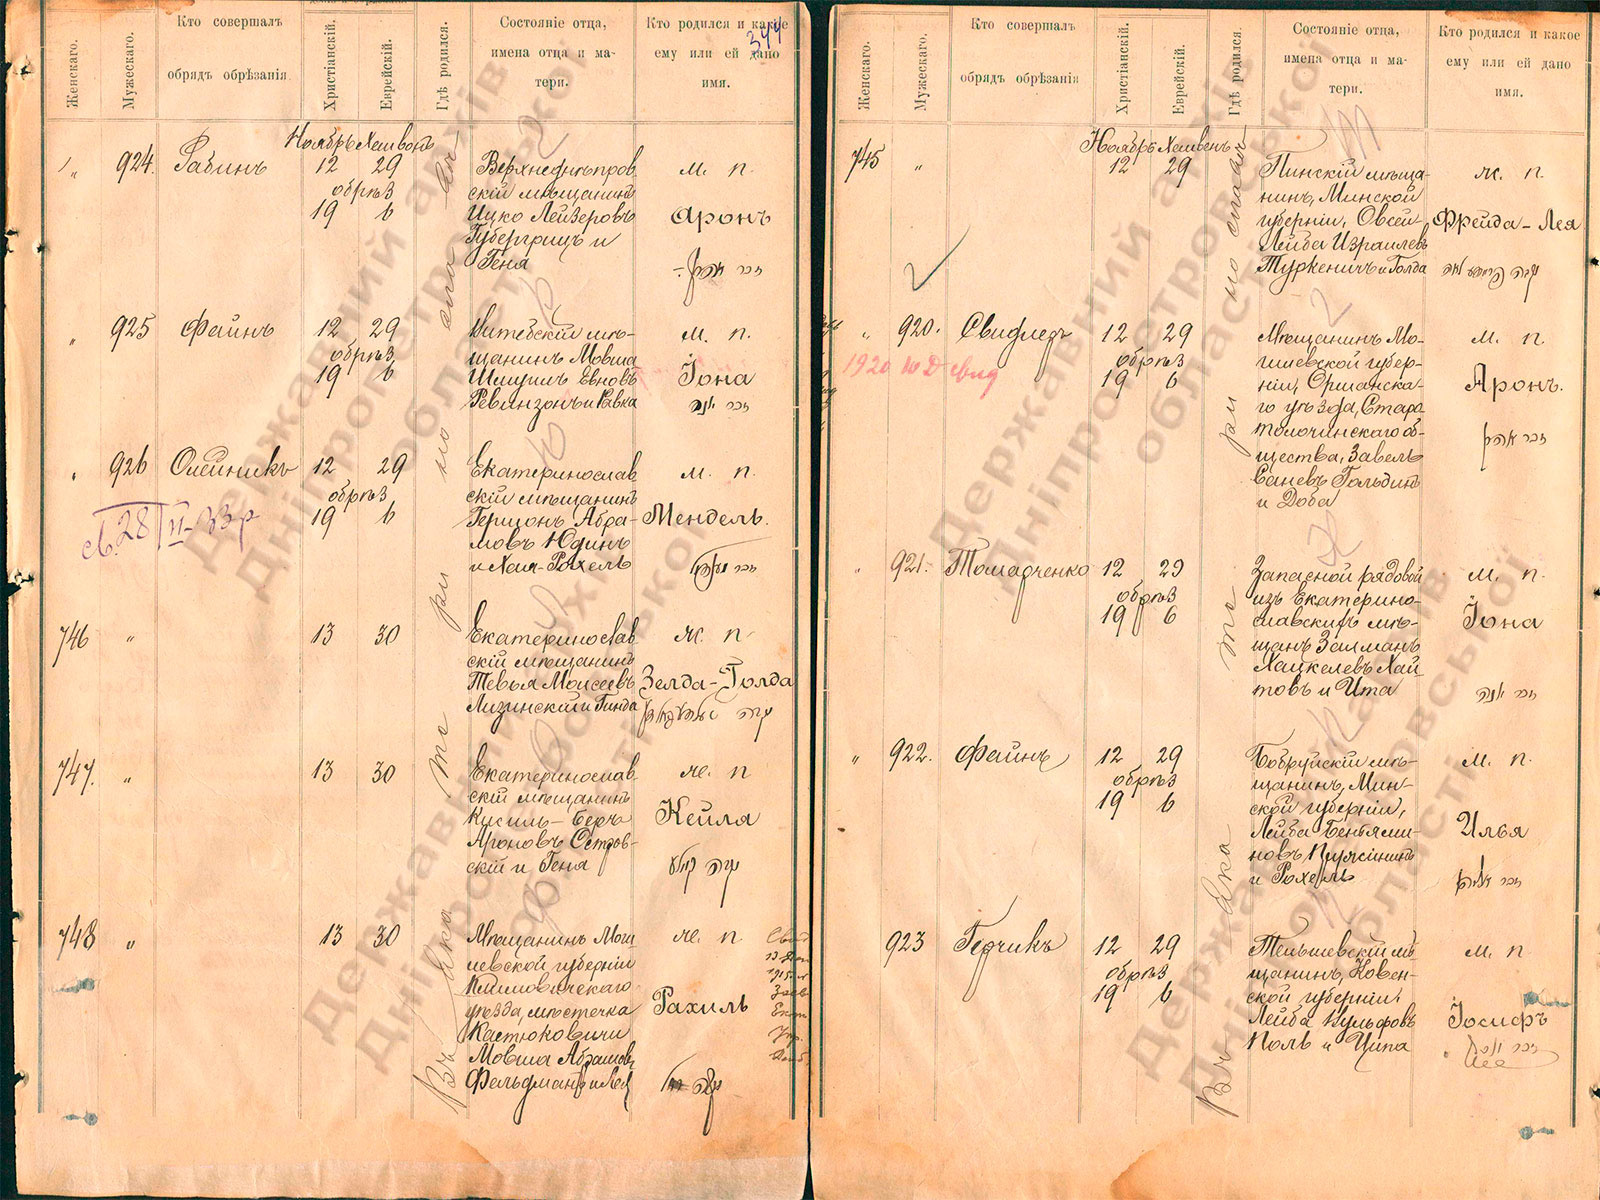 Женскаго.
Мужескаго.
Кто совершалъ
обрядъ обрѣзанія
Христіанскій.
Еврейскій.
Гдѣ родился.
Состояніе отца,
имена отца и ма-
тери.
Кто родился и какое
ему или ей дано
имя.
344
Ноябрь Хешвонъ
„ 924. Рабинъ 12 29
обрѣз
19 6
Верхнеднѣпров
скій мѣщанинъ
Ицко Лейзеровъ
Губергрицъ и
Геня
м. п.
Аронъ
„ 925 Файнъ 12 29
обрѣз
19 6
Витебскій мѣ-
щанинъ Мовша
Евновъ
Ревинзонъ и Ривка
м. п.
Іона
זכר יונה
„ 926 Олейникъ 12 29
обрѣз
19 6
Екатеринослав
скій мѣщанинъ
Гершонъ Абра-
мовъ Юдинъ
и Хая-Рохель
м. п.
Мендель.
746 „ 13 30
Екатеринослав
скій мѣщанинъ
Тевья Моисеевъ
Лизинскій и Гинда
ж. п
Зелда-Голда
747. „ 13 30
Екатеринослав
скій мѣщанинъ
Кусиль-Беръ
Ароновъ Остров-
скій и Геня
ж. п
Кейла
748 „ 13 30
Мѣщанинъ Моги
левской губерніи
Климовичскаго
уѣзда, мѣстечка
Костюковичи
Мовша Абрамовъ
Фельдманъ и Лея
ж. п.
Рахиль
Въ Екатеринославѣ
Женскаго.
Мужескаго.
Кто совершалъ
обрядъ обрѣзанія
Христіанскій.
Еврейскій.
Гдѣ родился.
Состояніе отца,
имена отца и ма-
тери.
Кто родился и какое
ему или ей дано
имя.
Ноябрь Хешвенъ
745 „ 12 29
Пинскій мѣща-
нинъ, Минской
губерніи, Овсей-
Лейба Израилевъ
Туркеничъ и Голда
ж. п.
Фрейда-Лея
„ 920. 12 29
обрѣз
19 6
Мѣщанинъ Мо-
гилевской губер-
ніи, Оршанска-
го уѣзда, Старо
толочинскаго об-
щества, Завель
Гольдинъ
и Доба
м. п.
Аронъ.
„ 921. Томарченко 12 29
обрѣз
19 6
Запасной рядовой
изъ Екатерино-
славскихъ мѣ-
щанъ Залманъ
Хацкелевъ Хай
товъ и Ита
м. п.
Іона
זכר יונה
„ 922. Файнъ 12 29
обрѣз
19 6
Бобруйскій мѣ-
щанинъ, Мин-
ской губерніи,
Лейба Беньями-
новъ
и Рохель
м. п.
Илья
923 Герчикъ 12 29
обрѣз
19 6
Тельшевскій мѣ-
щанинъ, Ковен-
ской губерніи,
Лейба Вульфовъ
Поль и Ципа
м. п
Іосифъ
Въ Екатеринославѣ
Державний архів
Дніпропетровської
області